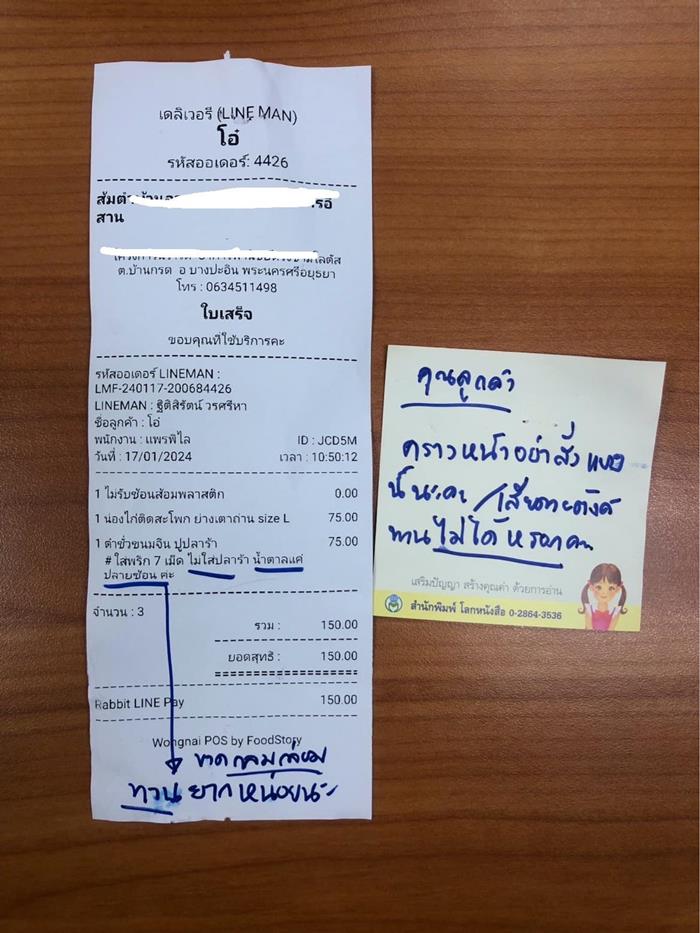 เดลิเวอรี (LINE MAN)
โอ๋
รหัสออเดอร์: 4426
ส้มตำ
สาน
ต.บ้านกรด อ บางปะอิน พระนครศรีอยุธยา
โทร : 0634511498
ใบเสร็จ
ขอบคุณที่ใช้บริการคะ
รหัสออเดอร์ LINEMAN :
LMF-240117-200684426
LINEMAN : ฐิติสิรัตน์ วรศรีหา
ชื่อลูกค้า : โอ๋
พนักงาน : แพรพิไล ID : JCD5M
วันที่ : 17/01/2024 เวลา : 10:50:12
1 ไม่รับช้อนส้อมพลาสติก 0.00
1 น่องไก่ติดสะโพก ย่างเตาถ่าน size L 75.00
1 ตำซั่วขนมจีน ปูปลาร้า 75.00
# ใส่พริก 7 เม็ด ไม่ใส่ปลาร้า น้ำตาลแค่
ปลายช้อน ค่ะ
จำนวน : 3
รวม : 150.00
ยอดสุทธิ : 150.00
Rabbit LINE Pay 150.00
Wongnai POS by FoodStory
ขาดกลมกล่อม
ทานยากหน่อยนะ
คุณลูกค้า
คราวหน้าอย่าสั่งแบบ
นี้นะคะ เสียดายตังค์
ทานไม่ได้หรอกคะ
เสริมปัญญา สร้างคุณค่า ด้วยการอ่าน
สำนักพิมพ์ โลกหนังสือ 0-2864-3536